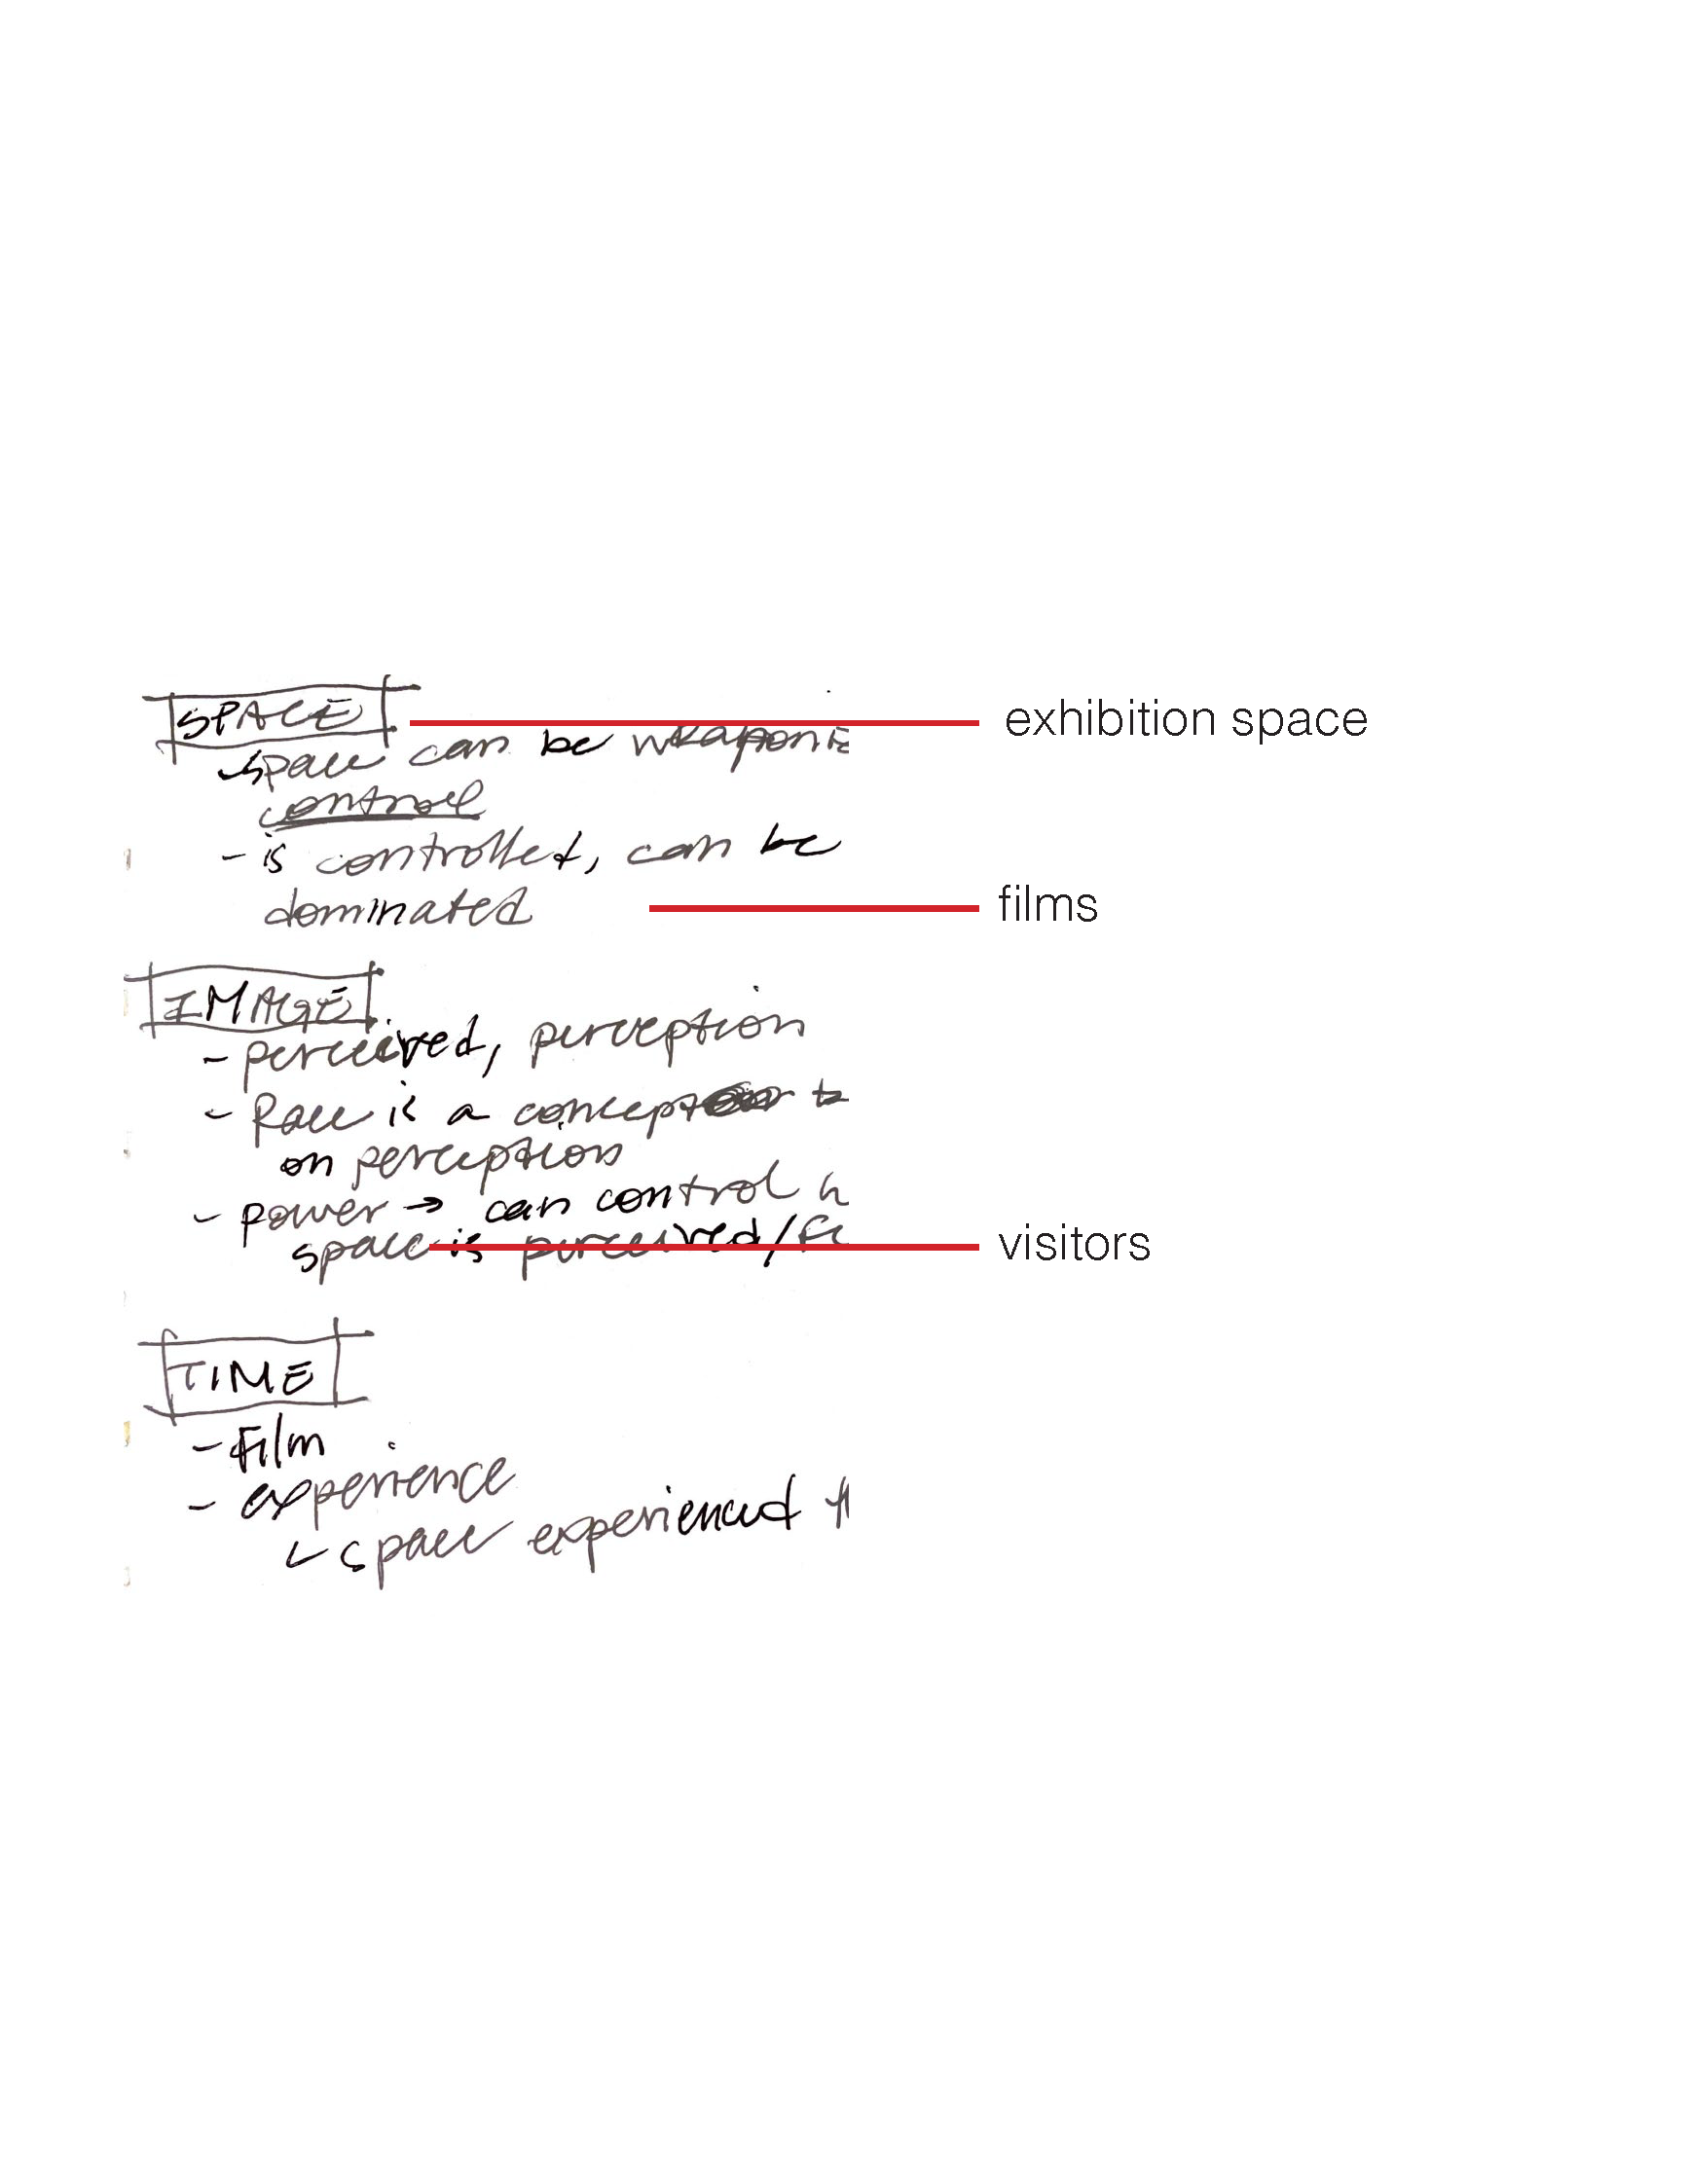 SPACE
exhibition space
space can be weaponiz
control
- is controlled, can be
dominated
films
IMAGE
- perceived, perception
- Race is a concept
on perception
- power → can control h
space is perceived/
visitors
TIME
- Film
- experience
space experienced